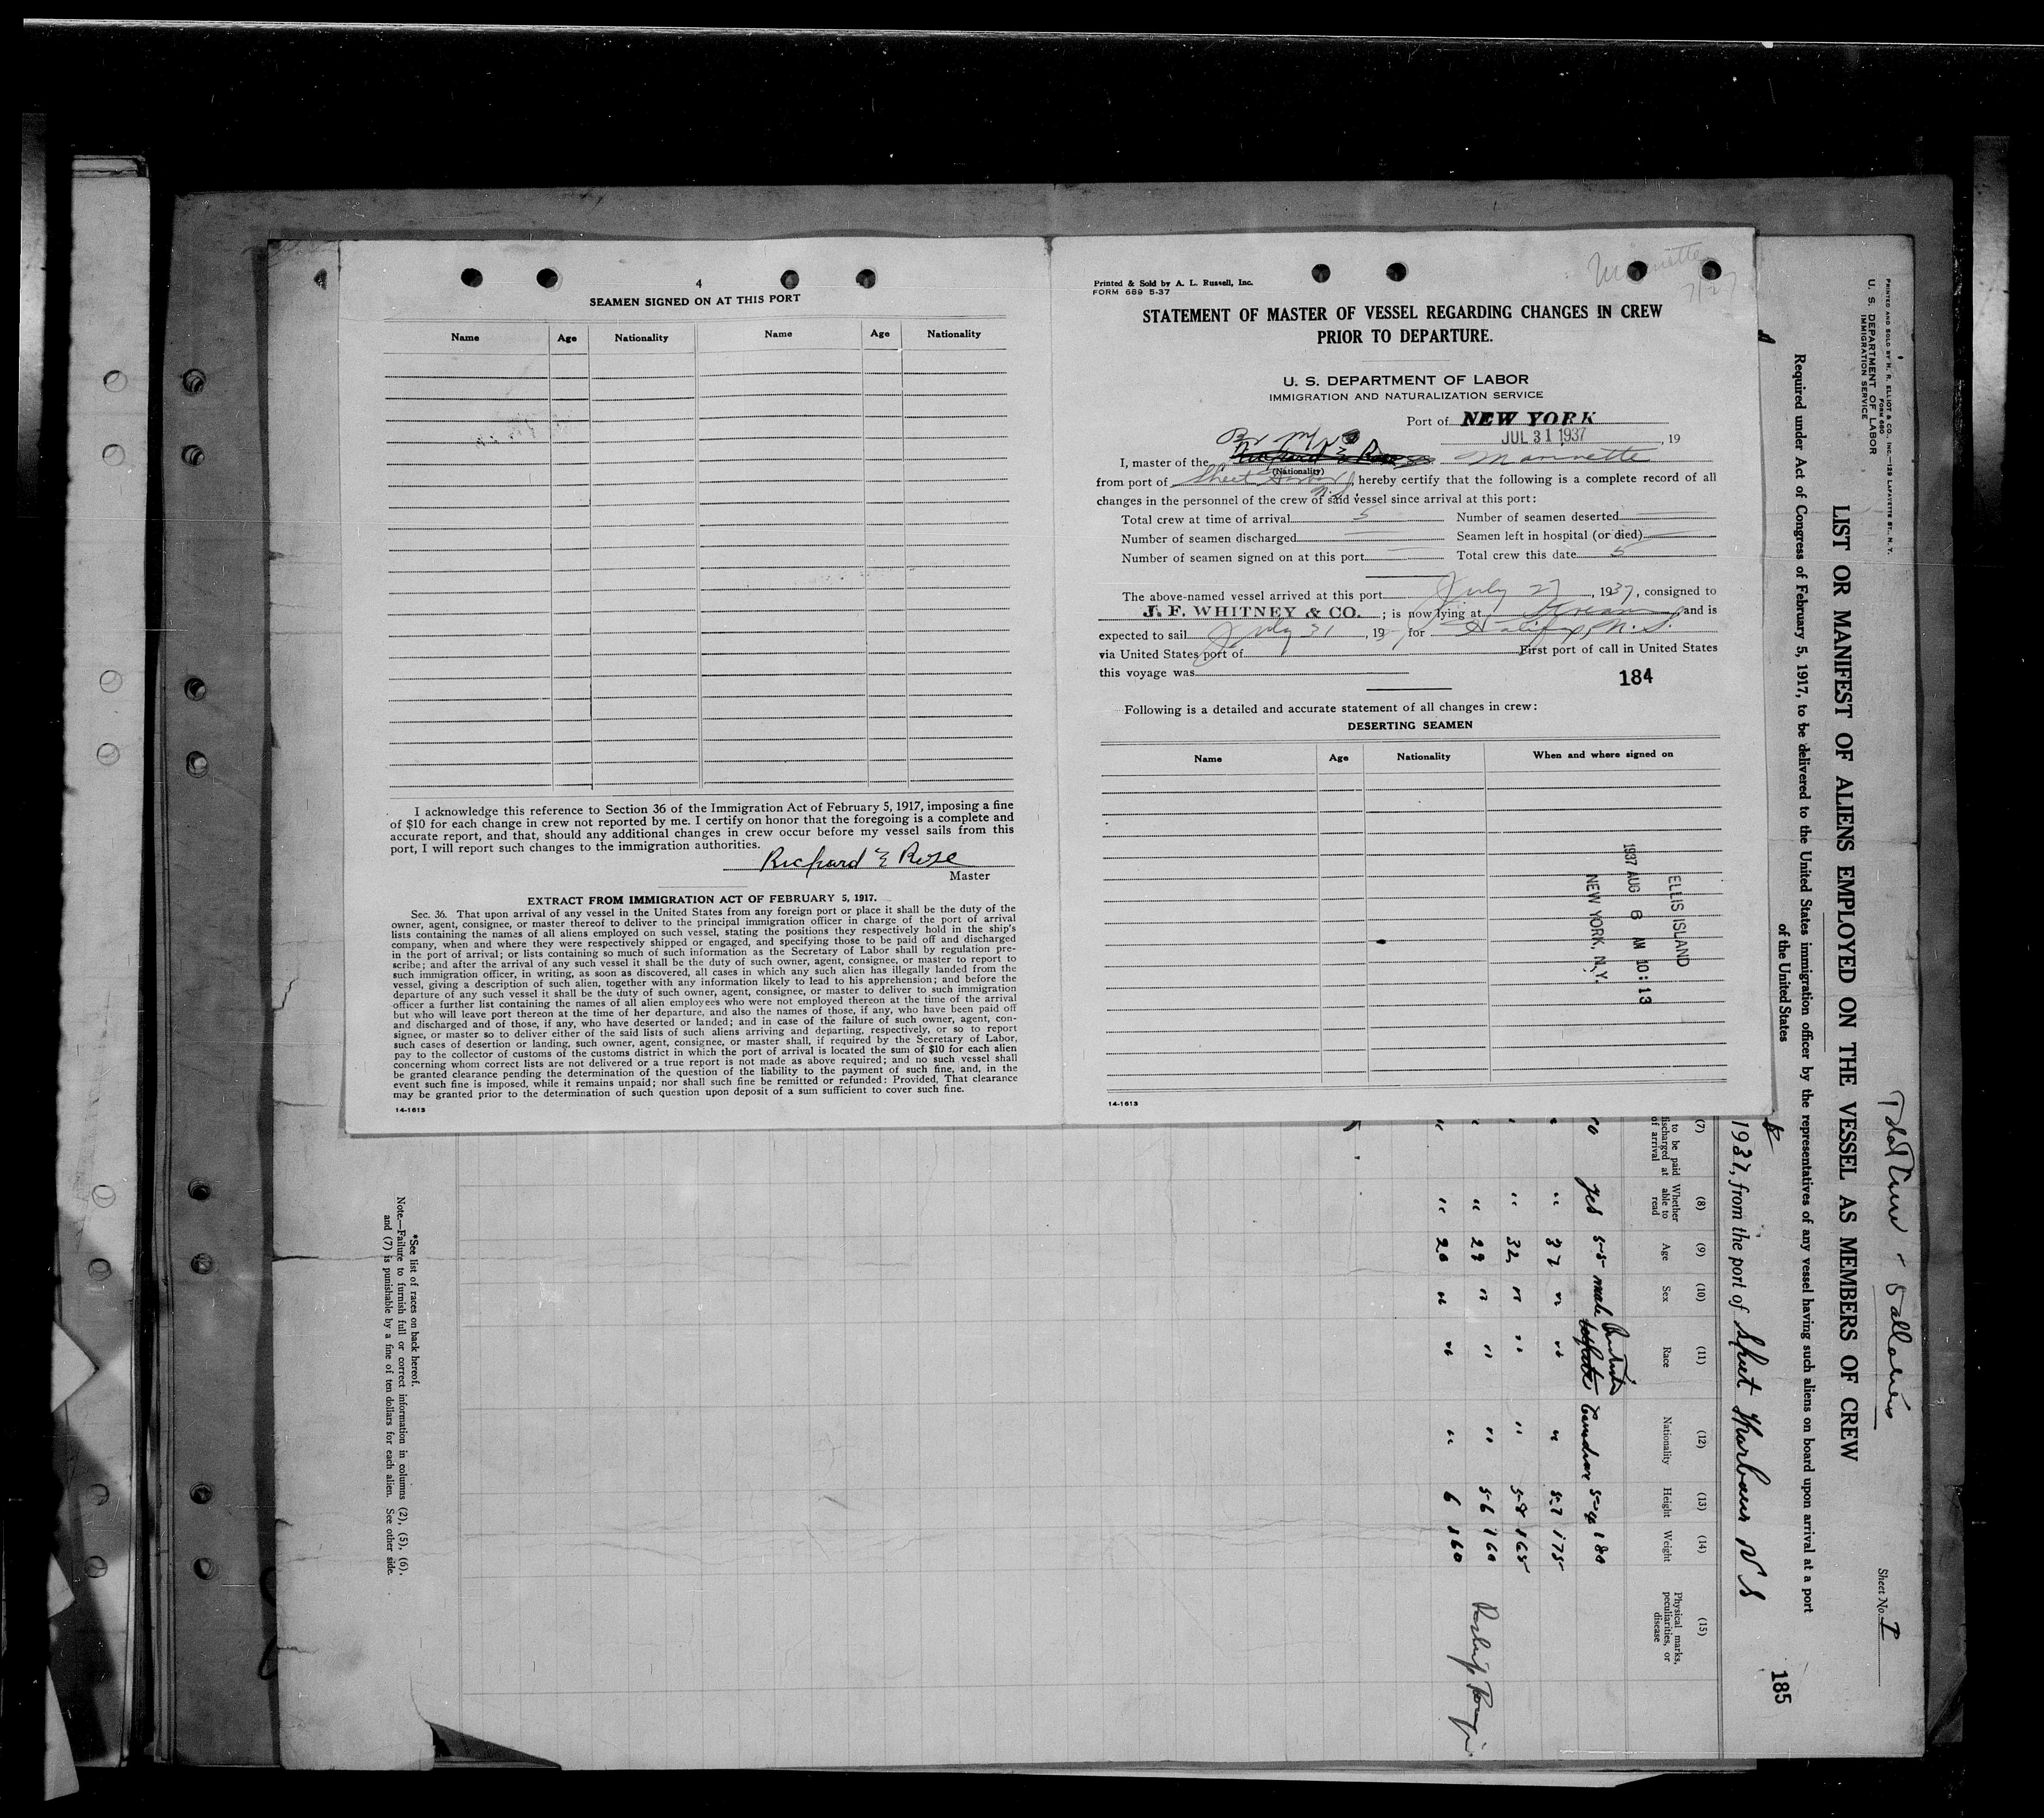 4
SEAMEN SIGNED ON AT THIS PORT
Name Age Nationality Name Age Nationality
I acknowledge this reference to Section 36 of the Immigration Act of February 5, 1917, imposing a fine
of $10 for each change in crew not reported by me. I certify on honor that the foregoing is a complete and
accurate report, and that, should any additional changes in crew occur before my vessel sails from this
port, I will report such changes to the immigration authorities.
Richard E Rose
Master
EXTRACT FROM IMMIGRATION ACT OF FEBRUARY 5, 1917.
Sec. 36. That upon arrival of any vessel in the United States from any foreign port or place it shall be the duty of the
owner, agent, consignee, or master thereof to deliver to the principal immigration officer in charge of the port of arrival
lists containing the names of all aliens employed on such vessel, stating the positions they respectively hold in the ship's
company, when and where they were respectively shipped or engaged, and specifying those to be paid off and discharged
in the port of arrival; or lists containing so much of such information as the Secretary of Labor shall by regulation pre-
scribe; and after the arrival of any such vessel it shall be the duty of such owner, agent, consignee, or master to report to
such immigration officer, in writing, as soon as discovered, all cases in which any such alien has illegally landed from the
vessel, giving a description of such alien, together with any information likely to lead to his apprehension; and before the
departure of any such vessel it shall be the duty of such owner, agent, consignee, or master to deliver to such immigration
officer a further list containing the names of all alien employees who were not employed thereon at the time of the arrival
but who will leave port thereon at the time of her departure, and also the names of those, if any, who have been paid off
and discharged and of those, if any, who have deserted or landed; and in case of the failure of such owner, agent, con-
signee, or master so to deliver either of the said lists of such aliens arriving and departing, respectively, or so to report
such cases of desertion or landing, such owner, agent, consignee, or master shall, if required by the Secretary of Labor,
pay to the collector of customs of the customs district in which the port of arrival is located the sum of $10 for each alien
concerning whom correct lists are not delivered or a true report is not made as above required; and no such vessel shall
be granted clearance pending the determination of the question of the liability to the payment of such fine, and, in the
event such fine is imposed, while it remains unpaid; nor shall such fine be remitted or refunded: Provided, That clearance
may be granted prior to the determination of such question upon deposit of a sum sufficient to cover such fine.
14-1613
Printed & Sold by A. L. Russell, Inc.
FORM 689 5-37
7/27
STATEMENT OF MASTER OF VESSEL REGARDING CHANGES IN CREW
PRIOR TO DEPARTURE.
U. S. DEPARTMENT OF LABOR
IMMIGRATION AND NATURALIZATION SERVICE
Port of NEW YORK
JUL 31 1937, 19
Br M/V
I, master of the Marinette
(Nationality)
from port of Sheet Harbor N.S., hereby certify that the following is a complete record of all
changes in the personnel of the crew of said vessel since arrival at this port:
Total crew at time of arrival 5 Number of seamen deserted
Number of seamen discharged Seamen left in hospital (or died)
Number of seamen signed on at this port Total crew this date 5
The above-named vessel arrived at this port July 27, 1937, consigned to
J. F. WHITNEY & CO. ; is now lying at Stream and is
expected to sail July 31, 19 for Halifax, N.S.
via United States port of First port of call in United States
this voyage was
184
Following is a detailed and accurate statement of all changes in crew:
DESERTING SEAMEN
Name Age Nationality When and where signed on
ELLIS ISLAND
1937 AUG 6 AM 10:13
NEW YORK, N.Y.
14-1613
PRINTED AND SOLD BY H. R. ELLIOT & CO., INC.—129 LAFAYETTE ST., N. Y.
FORM 680
U. S. DEPARTMENT OF LABOR
IMMIGRATION SERVICE
Sheet No. 1
LIST OR MANIFEST OF ALIENS EMPLOYED ON THE VESSEL AS MEMBERS OF CREW
Required under Act of Congress of February 5, 1917, to be delivered to the United States immigration officer by the representatives of any vessel having such aliens on board upon arrival at a port
of the United States
185
1937, from the port of Sheet Harbour N S
(7) (8) (9) (10) (11) (12) (13) (14) (15)
to be paid discharged at of arrival Whether able to read Age Sex Race Nationality Height Weight Physical marks, peculiarities, or disease
yes 55 male 5-4 180
" 37 " " " 5-7 175
" " 32 " " " 5-8 165
" " 29 " " " 5-6 160
" " 20 " " " 6 160
*See list of races on back hereof.
Note.—Failure to furnish full or correct information in columns (2), (5), (6),
and (7) is punishable by a fine of ten dollars for each alien. See other side.